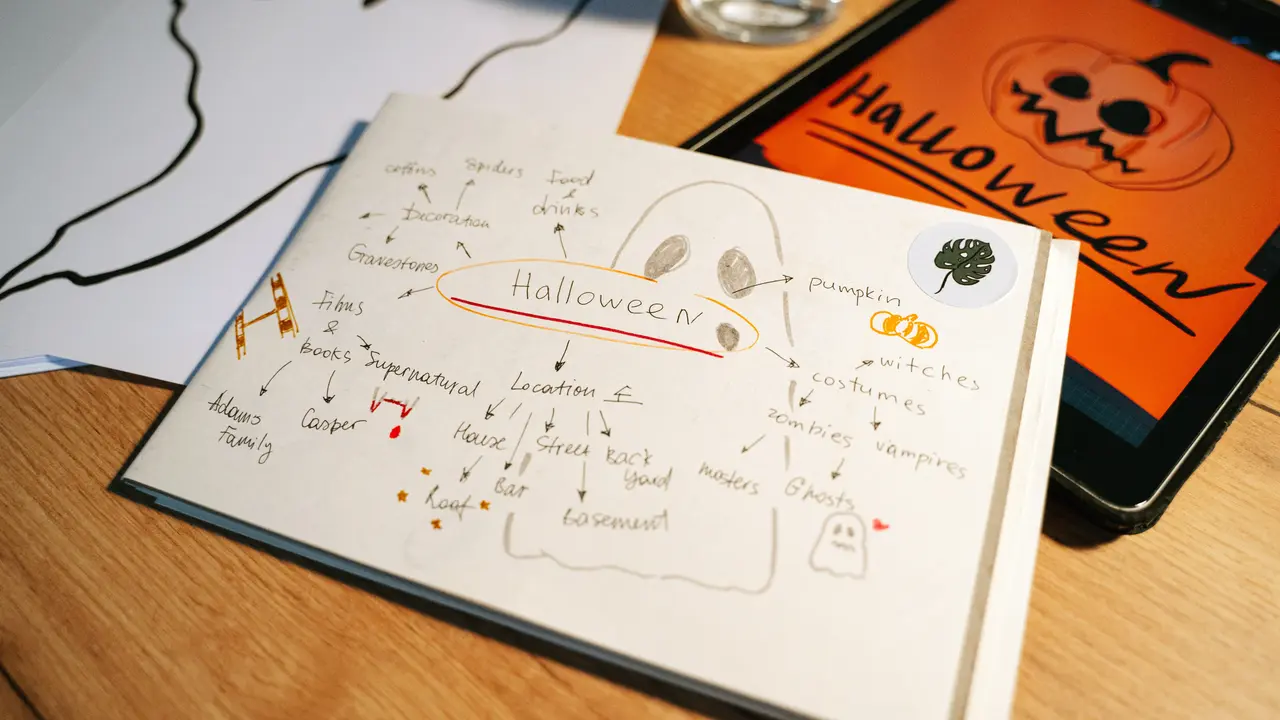 coffins
Spiders
Food
&
drinks
Decoration
Gravestones
Halloween
pumpkin
Films
&
Books
Supernatural
Adams
Family
Casper
Location
House
Street
Back
Yard
Roof
Bar
basement
costumes
witches
zombies
vampires
masters
Ghosts
Halloween